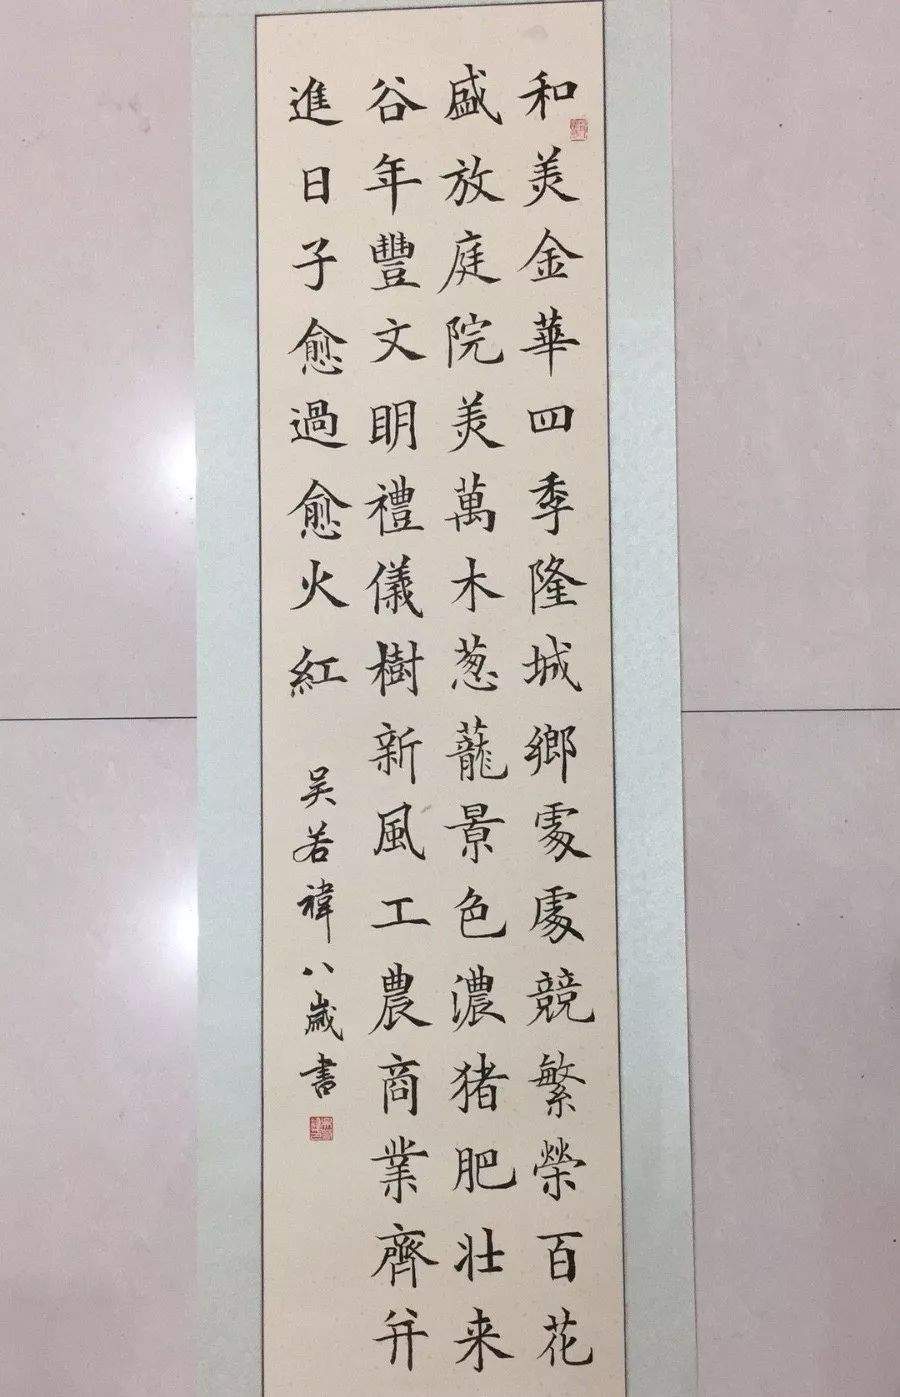 和美金華四季隆城鄉處處競繁榮百花
盛放庭院美萬木葱蘢景色濃猪肥壮来
谷年豐文明禮儀樹新風工農商業齊并
進日子愈過愈火紅
吴若禕八歲書